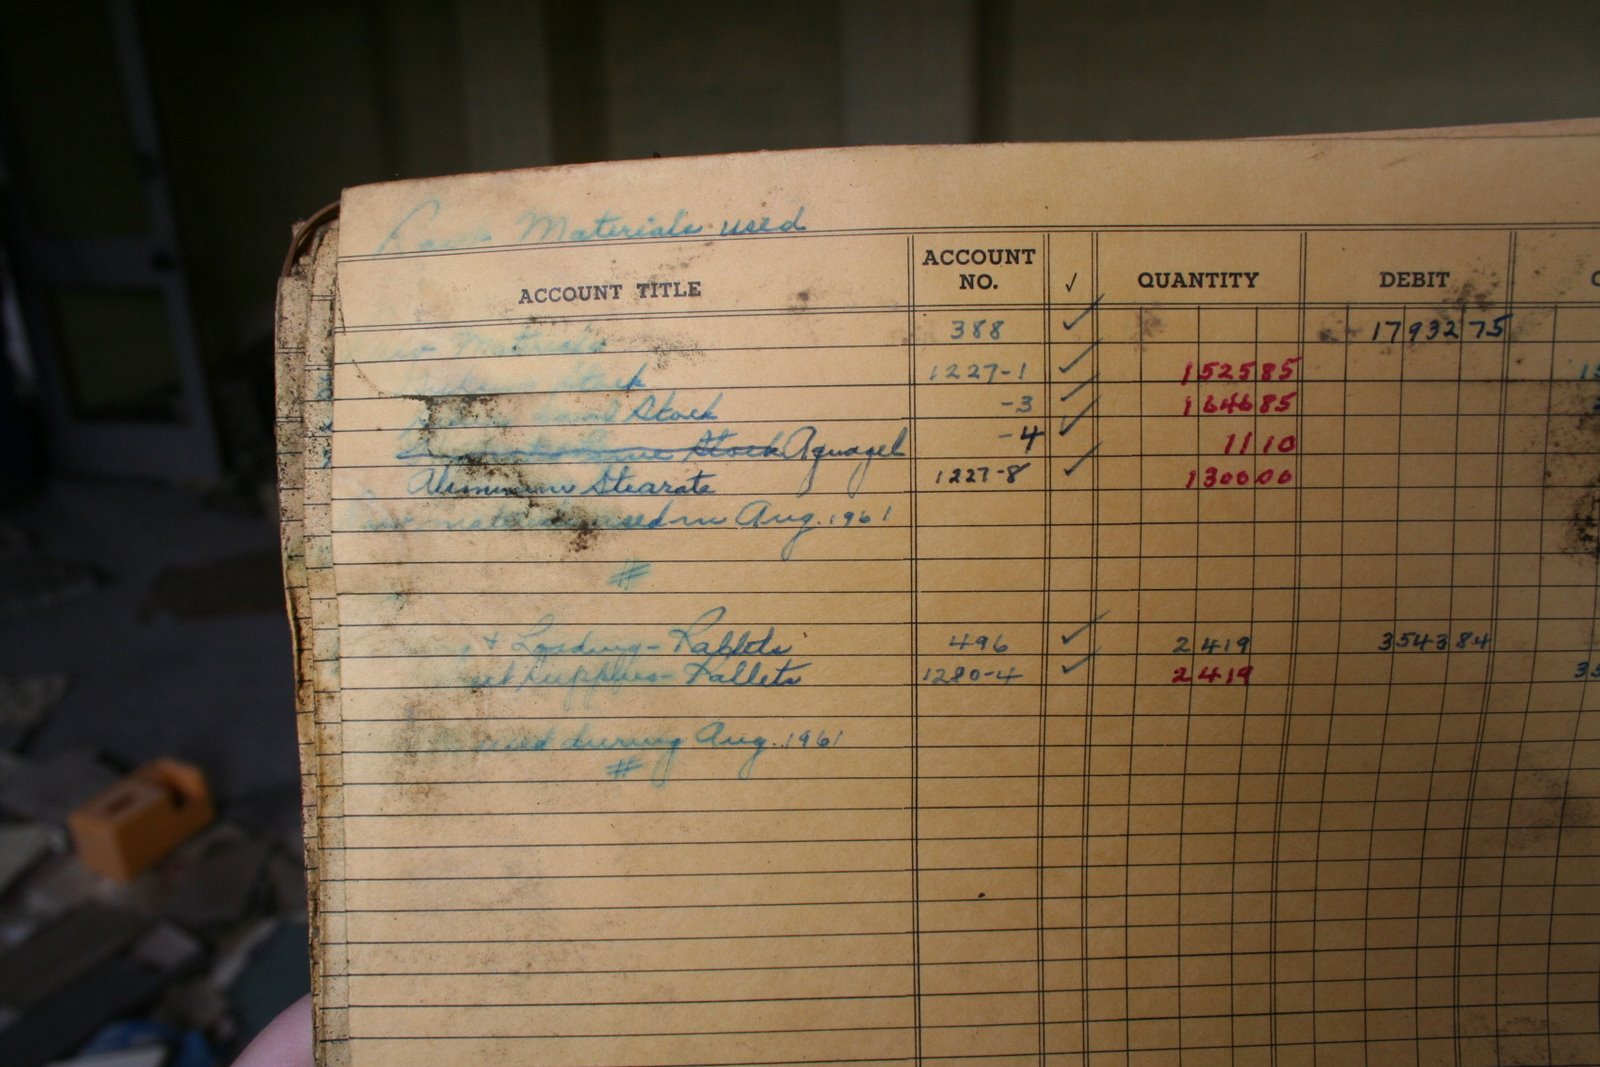 Raw Materials used
ACCOUNT TITLE ACCOUNT NO. ✓ QUANTITY DEBIT
Raw Materials 388 ✓ 17932 75
Stock 1227-1 ✓ 152585
Stock -3 ✓ 164685
Stock Aquagel -4 ✓ 1110
Aluminum Stearate 1227-8 ✓ 130000
Raw materials used in Aug. 1961
#
+ Loading - Pallets 496 ✓ 2419 3543 84
Supplies - Pallets 1280-4 ✓ 2419
used during Aug. 1961
#